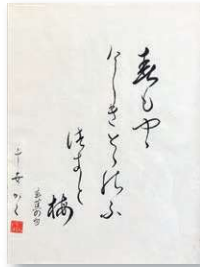 春もやゝ
けしきとゝのふ
月と
梅
芭蕉の句